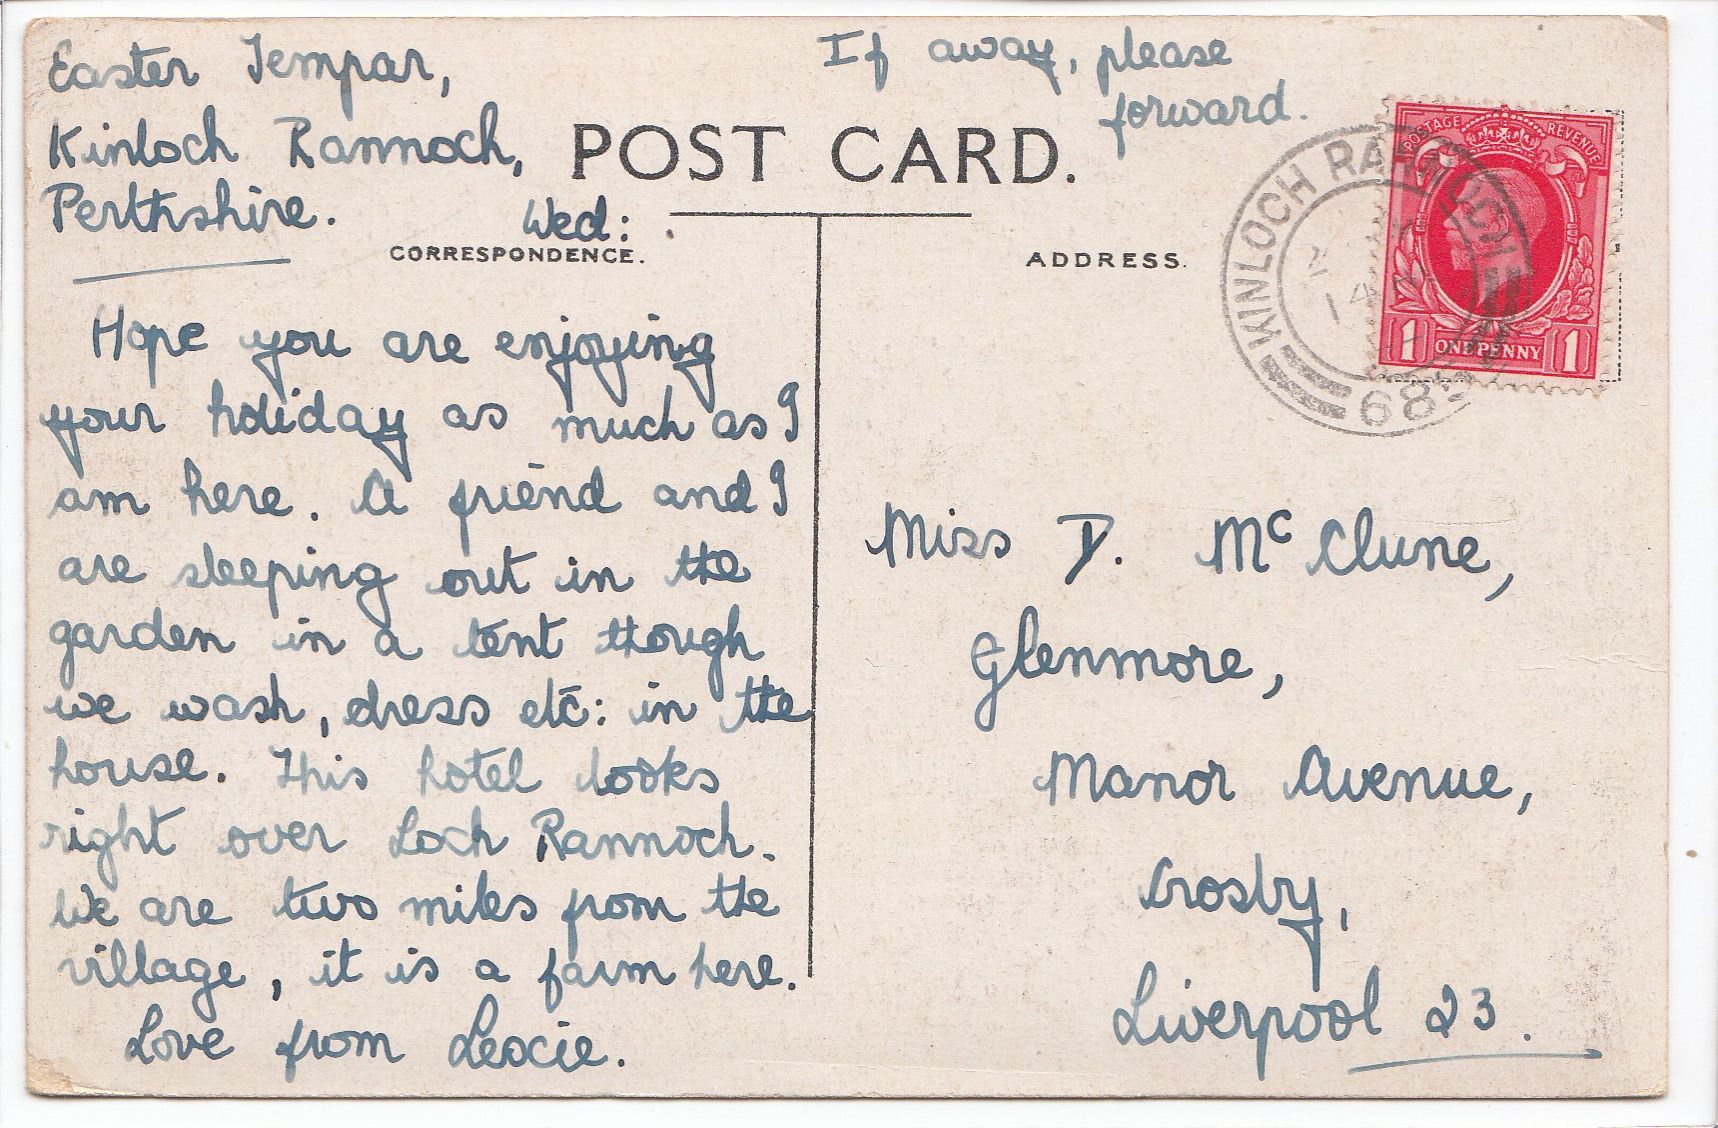 Easter Tempar,
Kinloch Rannoch,
Perthshire.
Wed:
If away, please
forward.
POST CARD.
CORRESPONDENCE.
ADDRESS.
Hope you are enjoying
your holiday as much as I
am here. A friend and I
are sleeping out in the
garden in a tent though
we wash, dress etc: in the
house. This hotel looks
right over Loch Rannoch.
We are two miles from the
village, it is a farm here.
Love from Lexie.
POSTAGE REVENUE
1 ONE PENNY 1
KINLOCH RANNOCH
Miss D. McClune,
Glenmore,
Manor Avenue,
Crosby,
Liverpool 23.